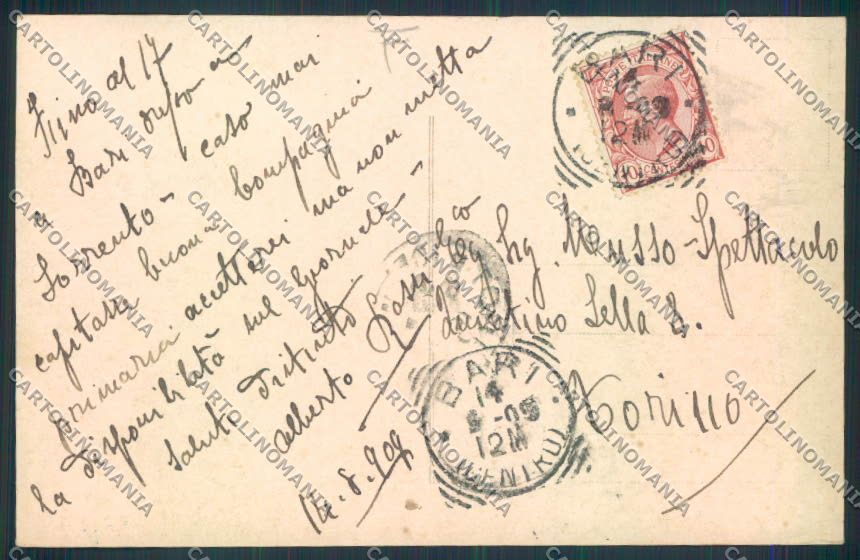 Fino al 17
Bari dopo a
Sorrento - caso mai
capitasse buona Compagnia
primaria accetterei ma non metta
la disponibilità sul giornale -
Saluti
Alberto Rossi
14.8.909
Sig. Musso - Spettacolo
Quintino Sella 2.
Torino
BARI
14
8-09
12M
(CENTRO)
BARI
10